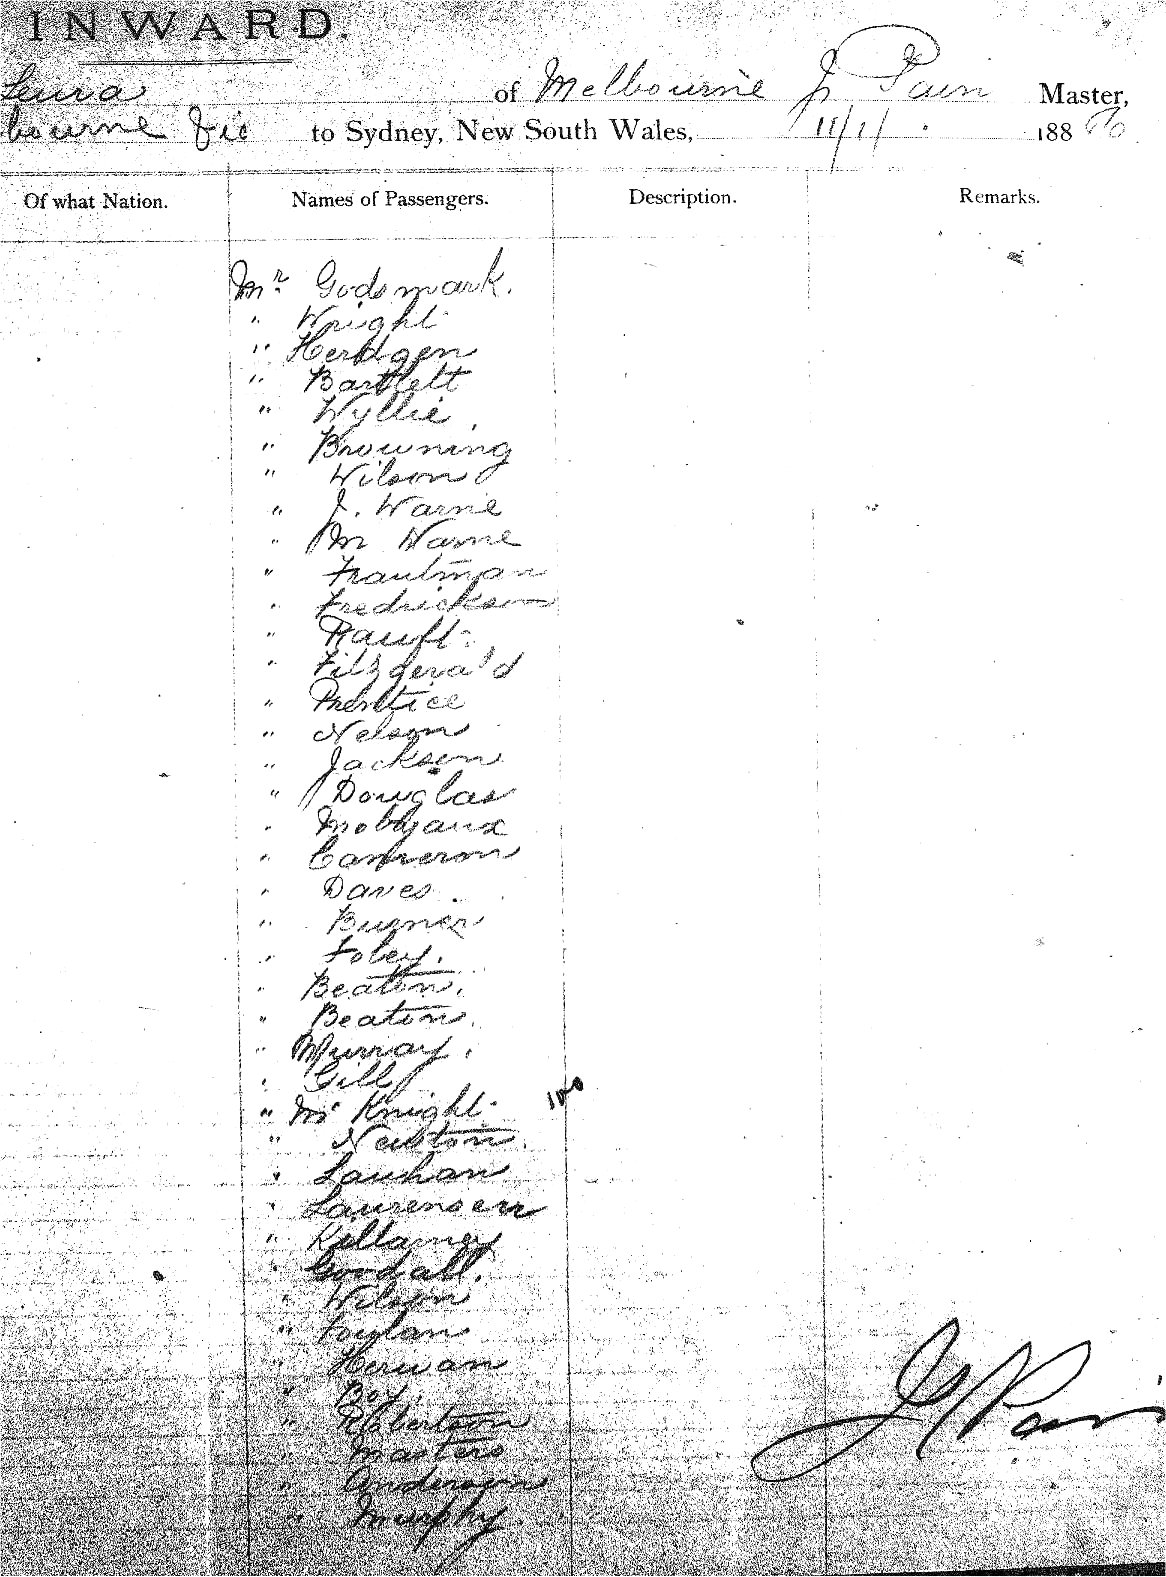 INWARD.
Leura of Melbourne J. Pain Master,
bourne Vic to Sydney, New South Wales, 11/1/ 188
Of what Nation. Names of Passengers. Description. Remarks.
Mr. Godsmark.
" Wright
" Herdgen
" Bartlett
" Wyllie
" Browning
" Wilson
" J. Warne
" M Warne
" Trautman
" Fredrickson
" Rauft
" Fitzgerald
" Prentice
" Nelson
" Jackson
" Douglas
" Molyaux
" Cameron
" Daves
" Burner
" Foley.
" Beaton.
" Beaton.
" Murray.
" Gill
" Mr Knight
" Newton.
" Lauhan
" Laurensen
" Killarney
" Goodall.
" Wilson
" Foylan
" Herwan
" Boy.
" Robertson
" Masters
" Anderson
" Murphy.
J Pain